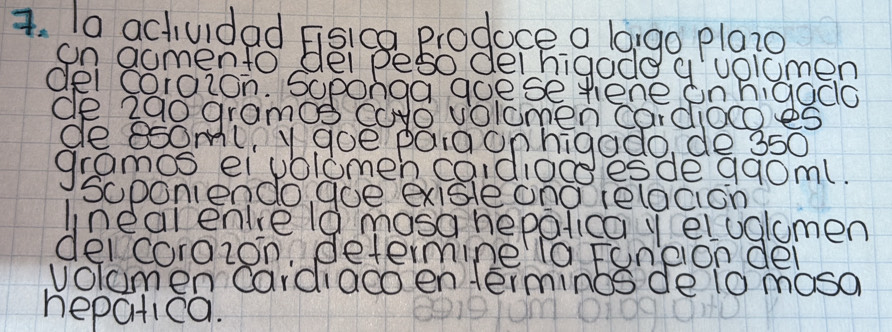 7. la actividad Física produce a largo plazo
un aumento del peso del higado y volumen
del corazon. Suponga que se tiene un higado
de 290 gramos cuyo volumen cardiaco es
de 850ml, y que para un higado de 350
gramos el volumen cardiaco es de 990ml.
Suponiendo que existe una relación
lineal entre la masa hepática y el volumen
del corazón, determine la Función del
volumen cardiaco en términos de la masa
hepática.